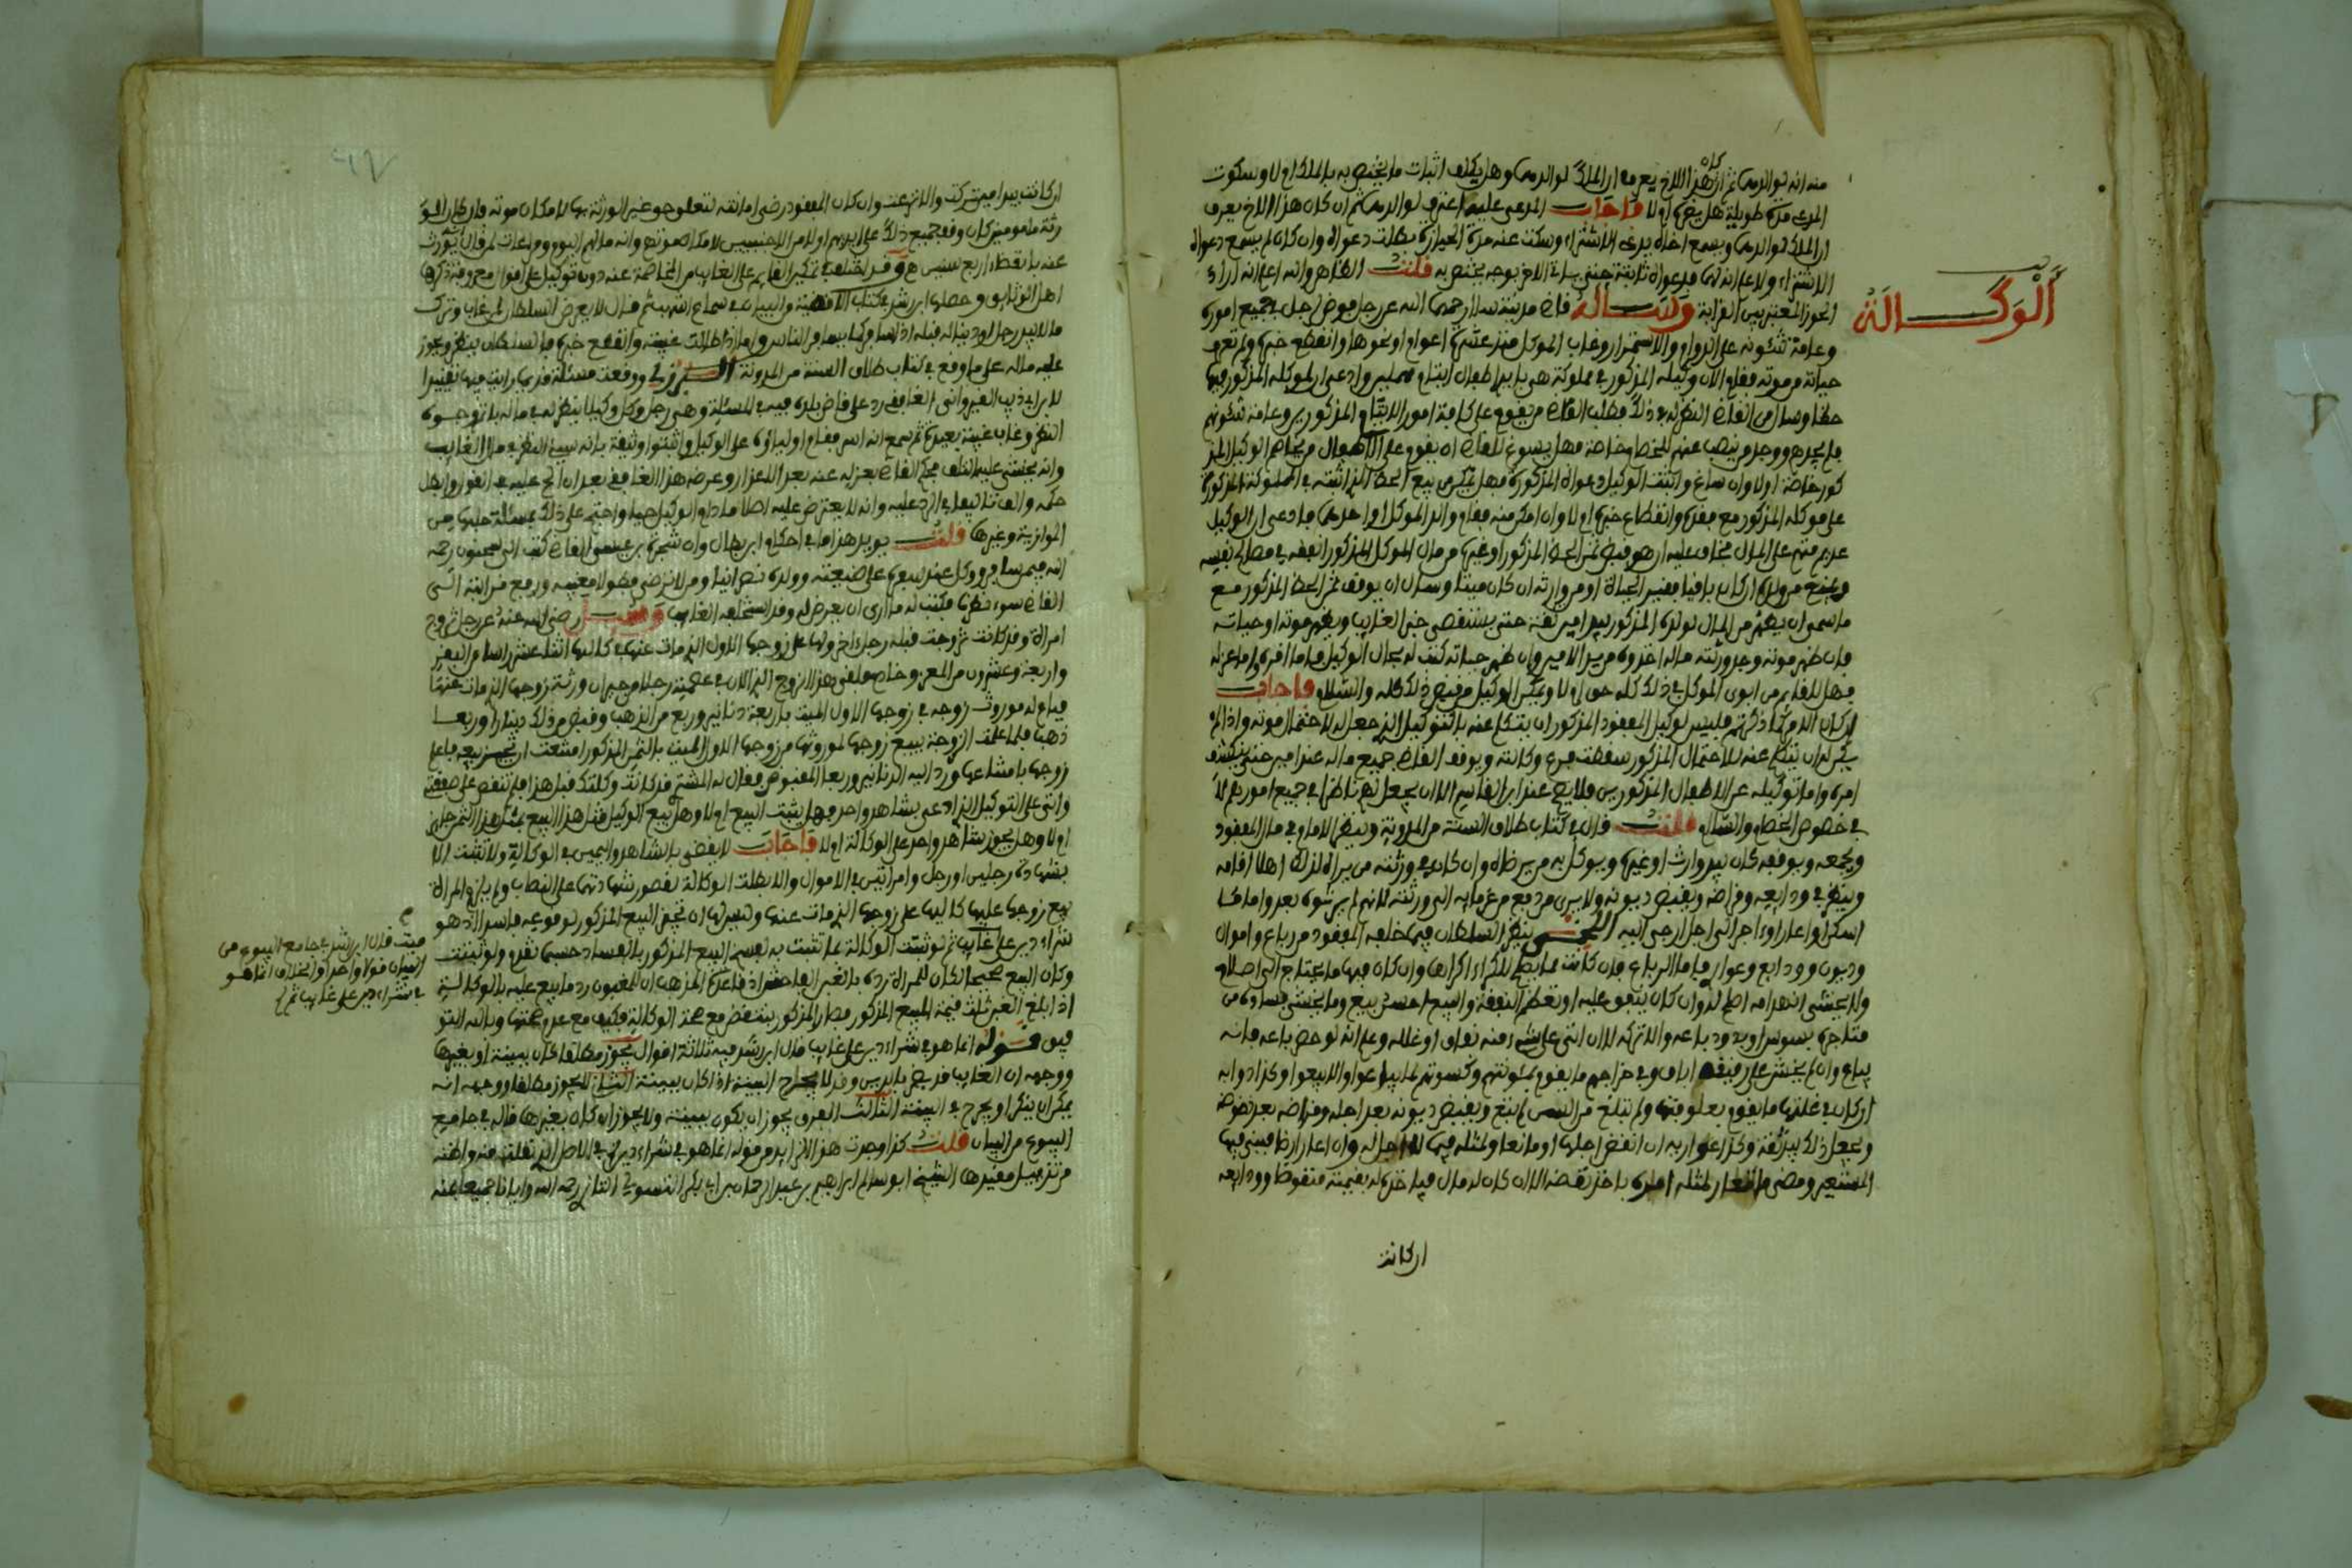 منه انه لوالدهما ثم ان كان هذا الاخ يعرف ان الملك لوالدهما وهل يكلف اثبات ما يختص به بالملك ام لا وسكوت
المدعي مدة طويلة هل يضره ام لا فاجاب المدعى عليه اعترف لوالدهما ثم ان كان هذا الاخ يعرف
ان الملك لوالدهما ويسمع اخاه يدعي الاشتراء وسكت عنه مدة الحيازة بطلت دعواه وان كان لم يسمع دعواه
الاشتراء ولا علم انه لهما فدعواه ثابتة حتى يثبت الاخ بوجه يختص به قلت الظاهر والله اعلم انه اراد
الحوز المعتبر بين القرابة وسئـاله قاضي مدينة سلا رحمهما الله عن رجل فوض لرجل في جميع اموره
الوكـالة
وعامة شئونه على الدوام والاستمرار وغاب الموكل منذ عشرة اعوام او نحوها وانقطع خبره ولم تعرف
حياته من موته فقام الان وكيله المذكور في مملوكة هي بايدي اطفال ايتام مهملين وادعى ان لموكله المذكور فيها
حظا وسال من القاضي النظر له في ذلك فطلب القاضي من يقوم على كافة امور الايتام المذكورين وعامة شئونهم
فلم يجده ووجد من ينصب عنهم للخصام خاصة فهل يسوغ للقاضي ان يقوم على الاطفال من يخاصم الوكيل المذ
كور خاصة ام لا وان ساغ واثبت الوكيل دعواه المذكورة فهل يمكن من بيع الحظ الذي اثبته في المملوكة المذكورة
على موكله المذكور مع فقده وانقطاع خبره ام لا وان امكن منه فقام والد الموكل او احدهما فادعى ان الوكيل
عديم متهم على المال يخاف عليه ان هو قبض ثمن الحظ المذكور او غيره من مال الموكل المذكور انفقه في مصالح نفسه
ويضيع من ولده ان كان باقيا بقيد الحياة او من وارثه ان كان ميتا وسال ان يوقف ثمن الحظ المذكور مع
ما سمى ان يظهر من المال لولده المذكور بيد امين ثقة حتى يستقصى خبر الغايب ويظهر موته او حياته
فان ظهر موته وجد ورثته ماله اخذوه من يد الامين وان ظهر حياته كنت له بحال الوكيل فاما اقره واما عزله
فهل للقايم من ابوي الموكل في ذلك كله حق ام لا ويمكن الوكيل من قبض ذلك كله والسلام فاجاب
ان كان الامر كما ذكرتم فليس لوكيل المفقود المذكور ان يتكلم عنه بالتوكيل الذي جعل له لاحتمال موته واذا لم
يكن له ان يتكلم عنه للاحتمال المذكور سقطت فرع وكالته ويوقف القاضي جميع ماله عند امين حتى ينكشف
امره واما توكيله عن الاطفال المذكورين فلا يصح عند ابن القاسم الا ان يجعل لهم ناظرا في جميع امورهم لا
في خصوص الخصام والسلام قلت قال في كتاب طلاق السنة من المدونة وينظر الامام في مال المفقود
ويجمعه ويوقفه كان بيد وارث او غيره ويوكل به من يرضاه وان كان في ورثته من يراه لذلك اهلا اقامه
وينظر في ودايعه وقراضه ويقبض ديونه ولا يبرى من دفع من غرمايه الى ورثته لانهم لم يرثوه بعد وما
اسكن او اعار او اجر الى اجل ارجى اليه اللخمي ينظر السلطان فيما خلفه المفقود من رباع واموال
وديون وودايع وعوار فاما الرباع فان كانت مما يصلح للكراء اكراها وان كان فيها ما يحتاج الى اصلاح
ولا يخشى انهدامه اصلح له وان كان ينفق عليه او تعظم النفقة والبيع احسن بيع وما يخشى فساده من
متاجره بسوس او بدود باعه والا تركه الا ان اتى على شيء منه نفاق او غلاء وعلم انه لو حضر باعه فانه
يباع وان لم يخش على رقيقه اباق وفي خراجهم ما يقوم بمئونتهم وكسوتهم لم يباعوا والا بيعوا وكذا دوابه
ان كان في غلتها ما يقوم بعلوفتها ولم تبلغ من السن لم تبع ويقبض ديونه بعد اجله وقراضه بعد نضوضه
ويجعل ذلك بيد ثقة وكذا عواريه ان انقضى اجلها او ما نعاولمثله فيما لا اجل له وان اعار ارضا فبنى فيها
المستعير ومضى ما تعار لمثله امره باخذ نقضه الا ان كان له مال فياخذه له بقيمته منقوضا وودايعه
ان كانت
ان كانت بيد امين تركت والا نزعت وان كان المفقود رضي امانته لتعلق حق غير الورثة بها لامكان موته فان كان الو
رثة مامومين كان وقف جميع ذلك على ايديهم اولا من الاجنبيين لامكان موته وانه مالهم اليوم ولو مات لم قال يورث
عنه بانقضاء اربع سنين هـ وقد اختلف في تمكين القايم على الغايب من المخاصمة عنه دون توكيل على اقوال معروفة ذكرها
اهل الوثايق وحصلها ابن رشد في كتاب الاقضية والبيان في سماع اشهب ثم قال لا يعرض السلطان لمن غاب وترك
ماله بيد رجل او دينا له قبله اذا سافر كما يسافر الناس واما اذا طالت غيبته وانقطع خبره فالسلطان ينظر ويحوز
عليه ماله على ما وقع في كتاب طلاق السنة من المدونة البرزلي ووقعت مسئلة قديما رايت فيها تقييدا
لابي الذيب القيرواني القابسي رد على قاضي بلده فيه في المسئلة وهي رجل وكل وكيلا ينظر له في ماله بلا توجوه
النظر وغاب غيبة بعيدة ثم سمع انه اسر فقام اولياؤه على الوكيل واثبتوا وثيقة بانه سيئ النظر في مال الغايب
وانه يخشى عليه التلف فحكم القاضي بعزله عنه بعد الاعذار وعرضه هذا القابسي بعد ان الح عليه في انفوار وابطل
حكمه والف تاليفا في الرد عليه وانه لا يعترض عليه اصلا ما دام الوكيل حيا واحتج على ذلك بمسئلة جابها من
الموازية وغيرها قلت يويد هذا ما في احكام ابن بطال وان شجرة بن عيسى القاضي كتب الى سحنون رحمه
الله فيمن سافر ووكل عند سفره على ضيعته وولده نصرانيا ومن لا يرضى فضولا مغيبه ورفع قرابته الى
القاضي سوء نظره فكتب له ما ارى ان يعرض له وقد استخلفه الغايب وسئـل رضي الله عنه عن رجل تزوج
امراة وقد كانت تزوجت قبله رجلا اخر ولها على زوجها الاول الذي مات عنها كاليها اثنا عشر راسا من البقر
واربعة وعشرون من المعز وخاصم لقى هذا الزوج الذي الان في عصمته رجلا من جيران ورثة زوجها الذي مات عنها
فباع له موروث زوجه في زوجها الاول الميت باربعة دنانير وربع من الذهب وقبض من ذلك دينارا وربعا
ذهبا فلما علمت الزوجة ببيع زوجها لموروثها من زوجها الاول الميت بالثمن المذكور امتنعت ان تجيز بيعه فاعلم
زوجها بامتناعها ورد اليه الدنانير وربعا المقبوض فقال له المشتري قد كانت وكلتك قبل هذا فلم تنقض على صفقتي
واتى على التوكيل الذي ادعى بشاهد واحد فهل يثبت البيع ام لا وهل بيع الوكيل مثل هذا البيع بمثل هذا الثمن جايز
ام لا وهل يجوز شاهد واحد على الوكالة ام لا فاجاب لا يقضى بالشاهد واليمين في الوكالة ولا تثبت الا
بشهادة رجلين او رجل وامراتين في الاموال والا بطلت الوكالة لقصور شهادتها على النصاب ولم يلزم المراة
بيع زوجها عليها كاليها على زوجها الذي مات عنها وليس لها ان تجيز البيع المذكور لوقوعه فاسدا اذ هو
شراء دين على غايب ثم لو ثبتت الوكالة بما تثبت به لفسخ البيع المذكور بالفساد حسبما تقرر ولو ثبتت
وكان البيع صحيحا لكان للمراة رده بالغبن الفاحش اذ قاعدة المذهب ان المغبون رد ما بيع عليه بالوكالة
اذا بلغ الغبن ثلث قيمة المبيع المذكور فصار المذكور ينتقض مع صحة الوكالة فكيف مع عدم صحتها وبالله التو
فيق قـوله انما هو في شراء دين على غايب قال ابن رشد فيه ثلاثة اقوال يجوز مطلقا كان ببينة او بغيرها
ووجهه ان الغايب قد يقر بالدين وقد لا يحتاج البينة اذا كان ببينة الثاني لا يجوز مطلقا ووجهه انه
يمكن ان ينكر او يجرح في البينة الثالث الفرق يجوز ان يكون ببينة ولا يجوز ان كان بغيرها قاله في جامع
البيوع من البيان قلت كذا وجدت هذا الزايد من قوله انما هو في شراء دين الى في الاصل الذي نقلت منه واظنه
من تذييل مقيدها الشيخ ابو سالم ابراهيم بن عبد الرحمان بن ابي بكر التسولي التازي رحمه الله وايانا جميعا بمنه
قلت قال ابن رشد في جامع البيوع من
البيان قولا واحدا والخلاف انما هو
في شراء دين على غايب ثم